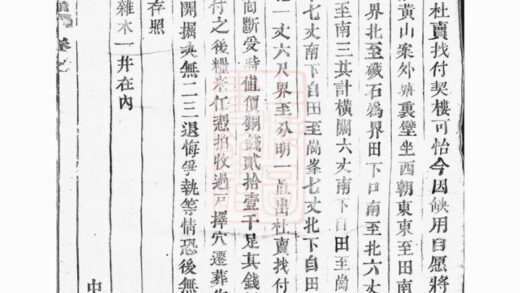 杜賣找付契樓可怡今因缺用自愿將
黃山案外塘裏壟坐西朝東東至田南
界北至礙石爲界田下口南至北六丈
至南三其計橫闊六丈南下自田至崗
七丈南下自田至崗峯七丈北下自田
一丈六尺界至分明一直出杜賣找付
向斷受時値價銅錢貳拾壹千足其錢
付之後糧來任憑拍收過戶擇穴遷葬
開掘决無二三退悔爭執等情恐後無
存照
雜木一幷在內
中